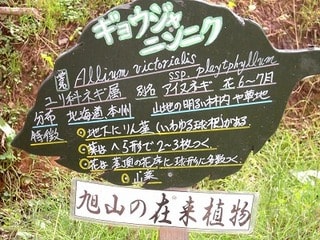 ギョウジャ
ニンニク
学名 Allium victorialis
ssp. platyphyllum
ユリ科ネギ属 別名 アイヌネギ 花 6~7月
分布 北海道 本州 山地の明るい林内や草地
特徴 ◎地下にりん茎(いわゆる球根)がある
◎葉はへら形で2~3枚つく
◎花は茎頂の花序に球形に多数つく
◎山菜
旭山の在来植物